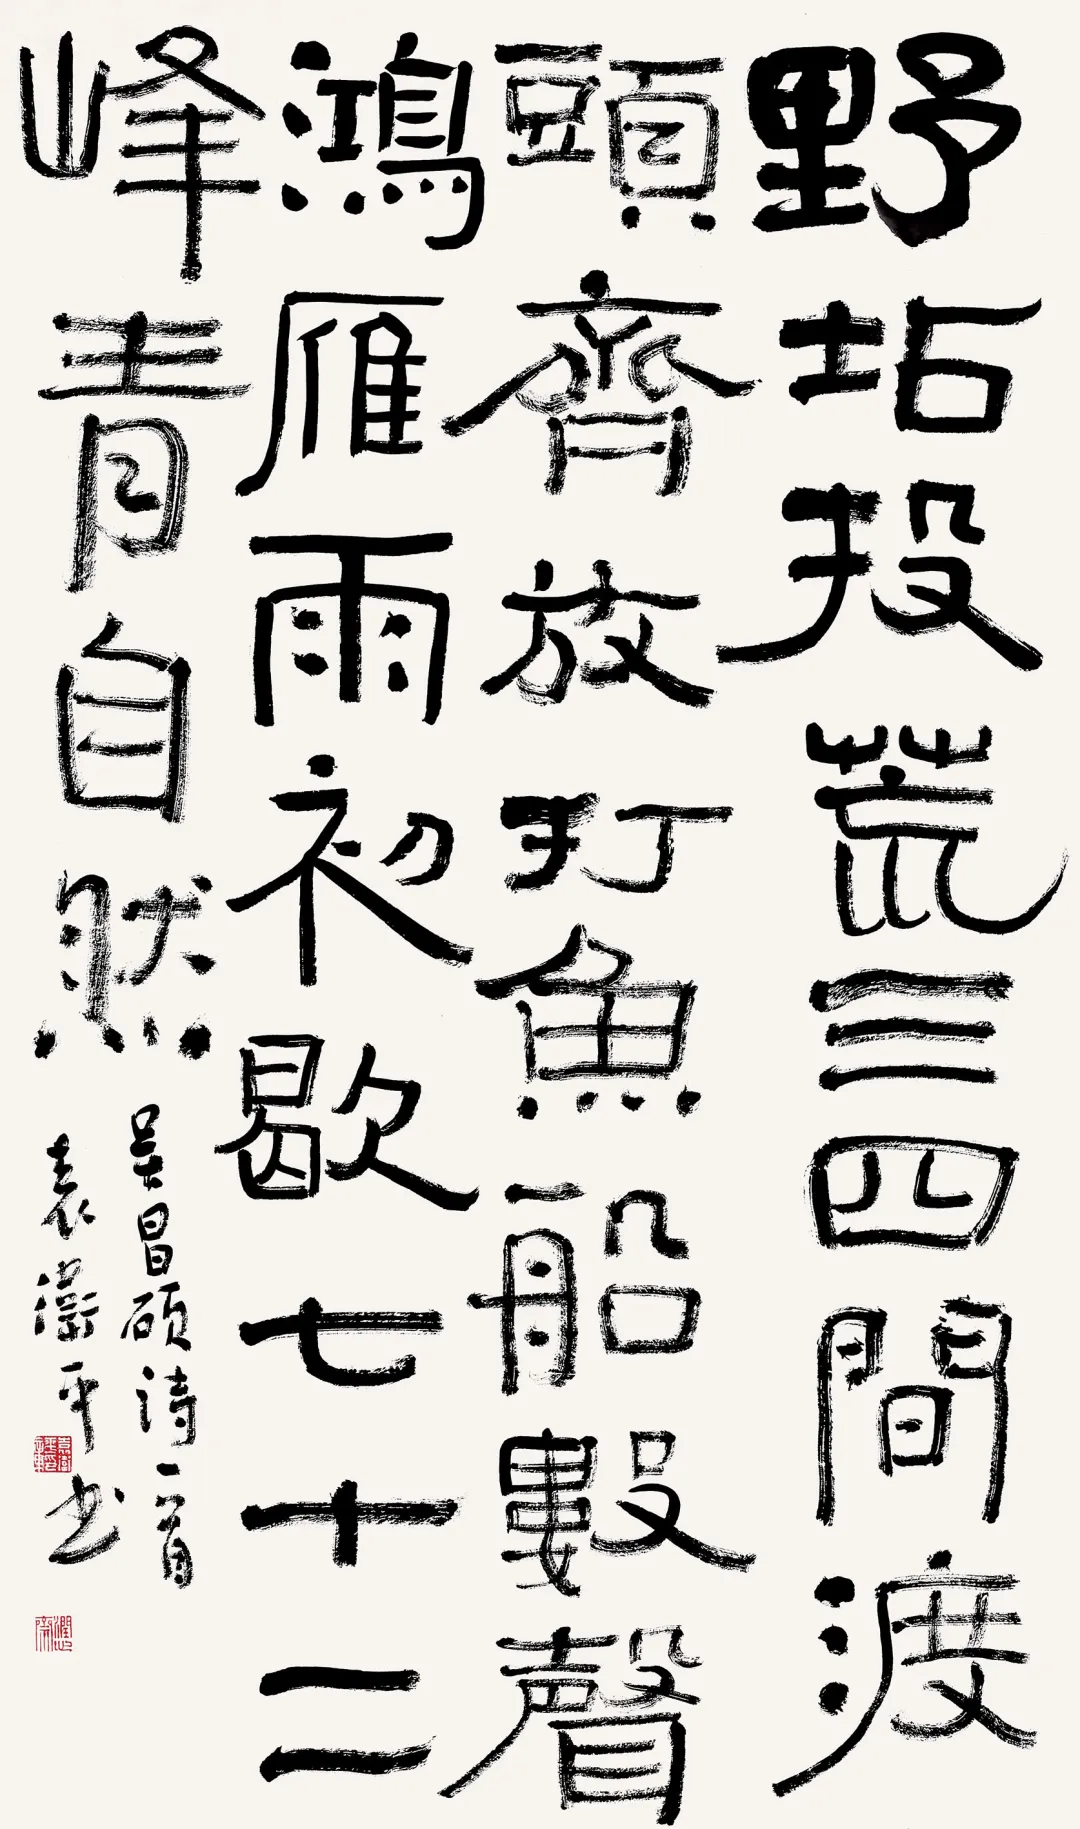 野坫投荒三四間渡
頭齊放打魚船數聲
鴻雁雨初歇七十二
峰青自然
吴昌碩詩一首
袁衛平书